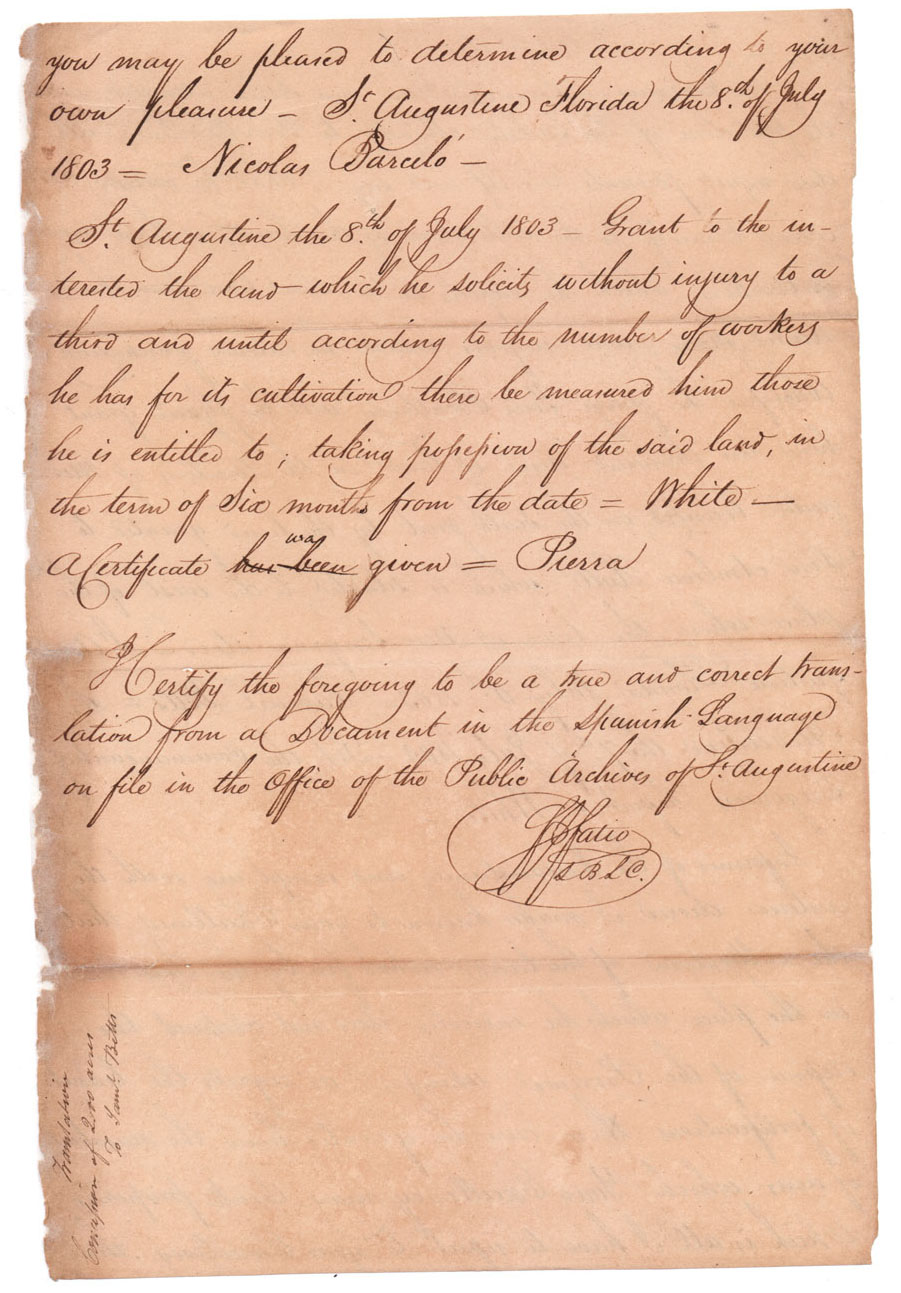 you may be pleased to determine according to your
own pleasure – St. Augustine Florida the 8.th of July
1803 = Nicolas Barceló –
St. Augustine the 8.th of July 1803 – Grant to the in-
terested the land which he solicits without injury to a
third and until according to the number of workers
he has for its cultivation there be measured him those
he is entitled to ; taking possession of the said land, in
the term of Six months from the date = White –
A Certificate has been was given = Pierra
I Certify the foregoing to be a true and correct trans-
lation from a Document in the Spanish Language
on file in the Office of the Public Archives of St. Augustine
F J Fatio
S B L C.
Translation
Concession of 200 acres
To Saml. Betts